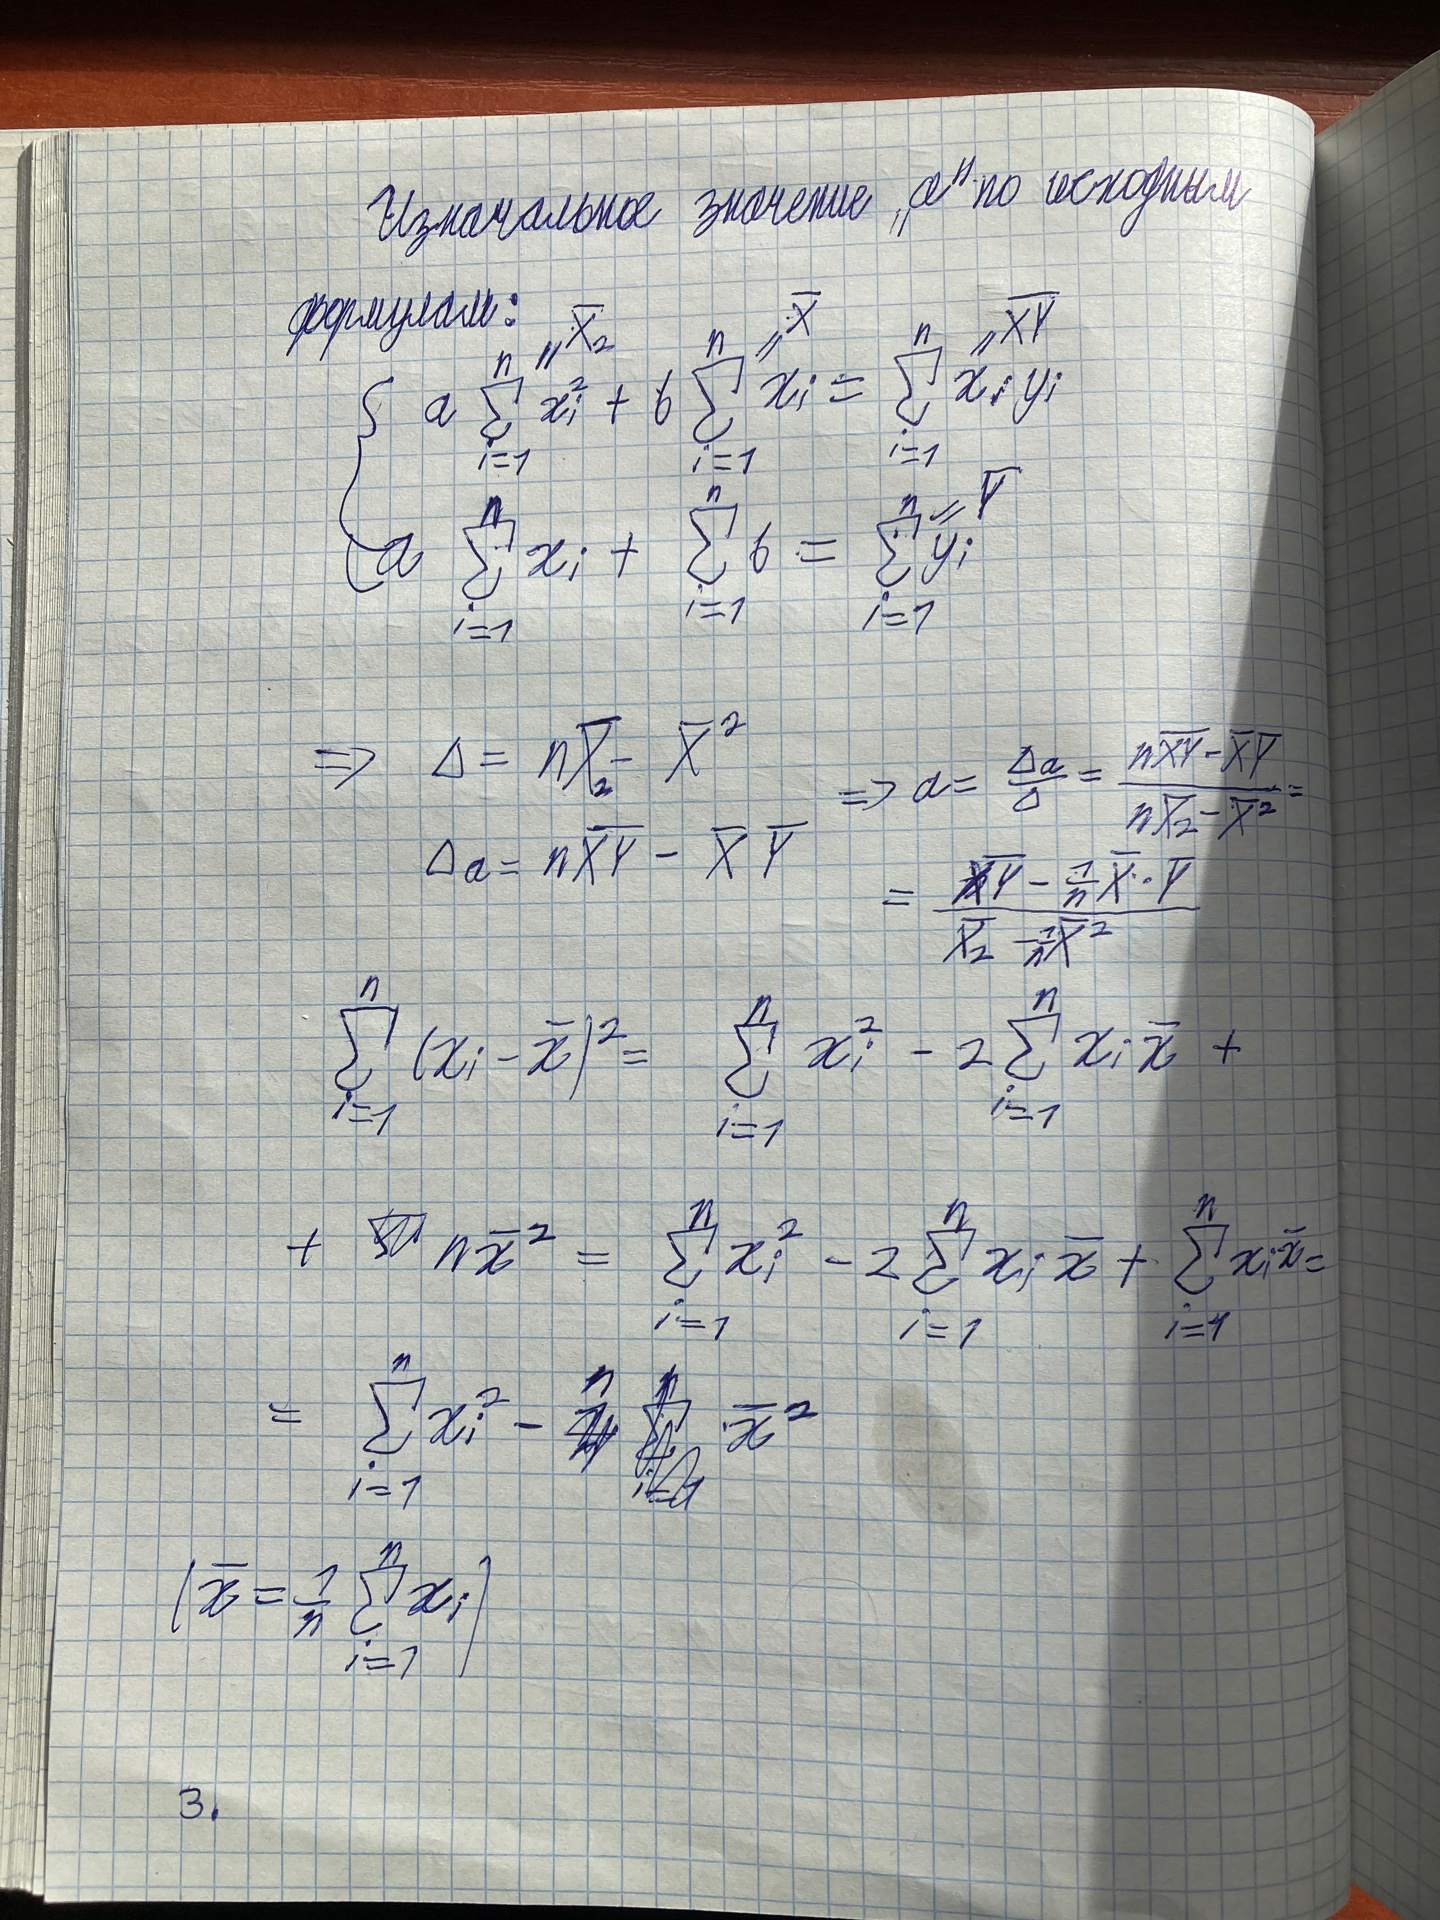 Изначальное значение „a" по исходным
формулам:
{ a ∑_{i=1}^{n} x_i^2 (= X̄_2) + b ∑_{i=1}^{n} x_i (= X̄) = ∑_{i=1}^{n} x_i y_i (= \overline{XY})
a ∑_{i=1}^{n} x_i + ∑_{i=1}^{n} b = ∑_{i=1}^{n} y_i (= Ȳ)
=> Δ = n X̄_2 - X̄^2
Δa = n \overline{XY} - X̄ Ȳ
=> a = Δa/Δ = (n \overline{XY} - X̄ Ȳ)/(n X̄_2 - X̄^2) =
= (\overline{XY} - 1/n X̄ · Ȳ)/(X̄_2 - 1/n X̄^2)
∑_{i=1}^{n} (x_i - x̄)^2 = ∑_{i=1}^{n} x_i^2 - 2 ∑_{i=1}^{n} x_i x̄ +
+ n x̄^2 = ∑_{i=1}^{n} x_i^2 - 2 ∑_{i=1}^{n} x_i x̄ + ∑_{i=1}^{n} x_i x̄ =
= ∑_{i=1}^{n} x_i^2 - n x̄^2
(x̄ = 1/n ∑_{i=1}^{n} x_i)
3.